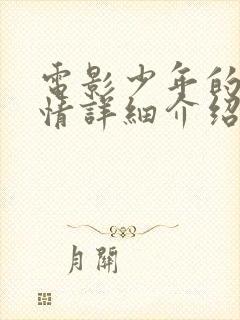 電影少年的
情詳細介紹
月關